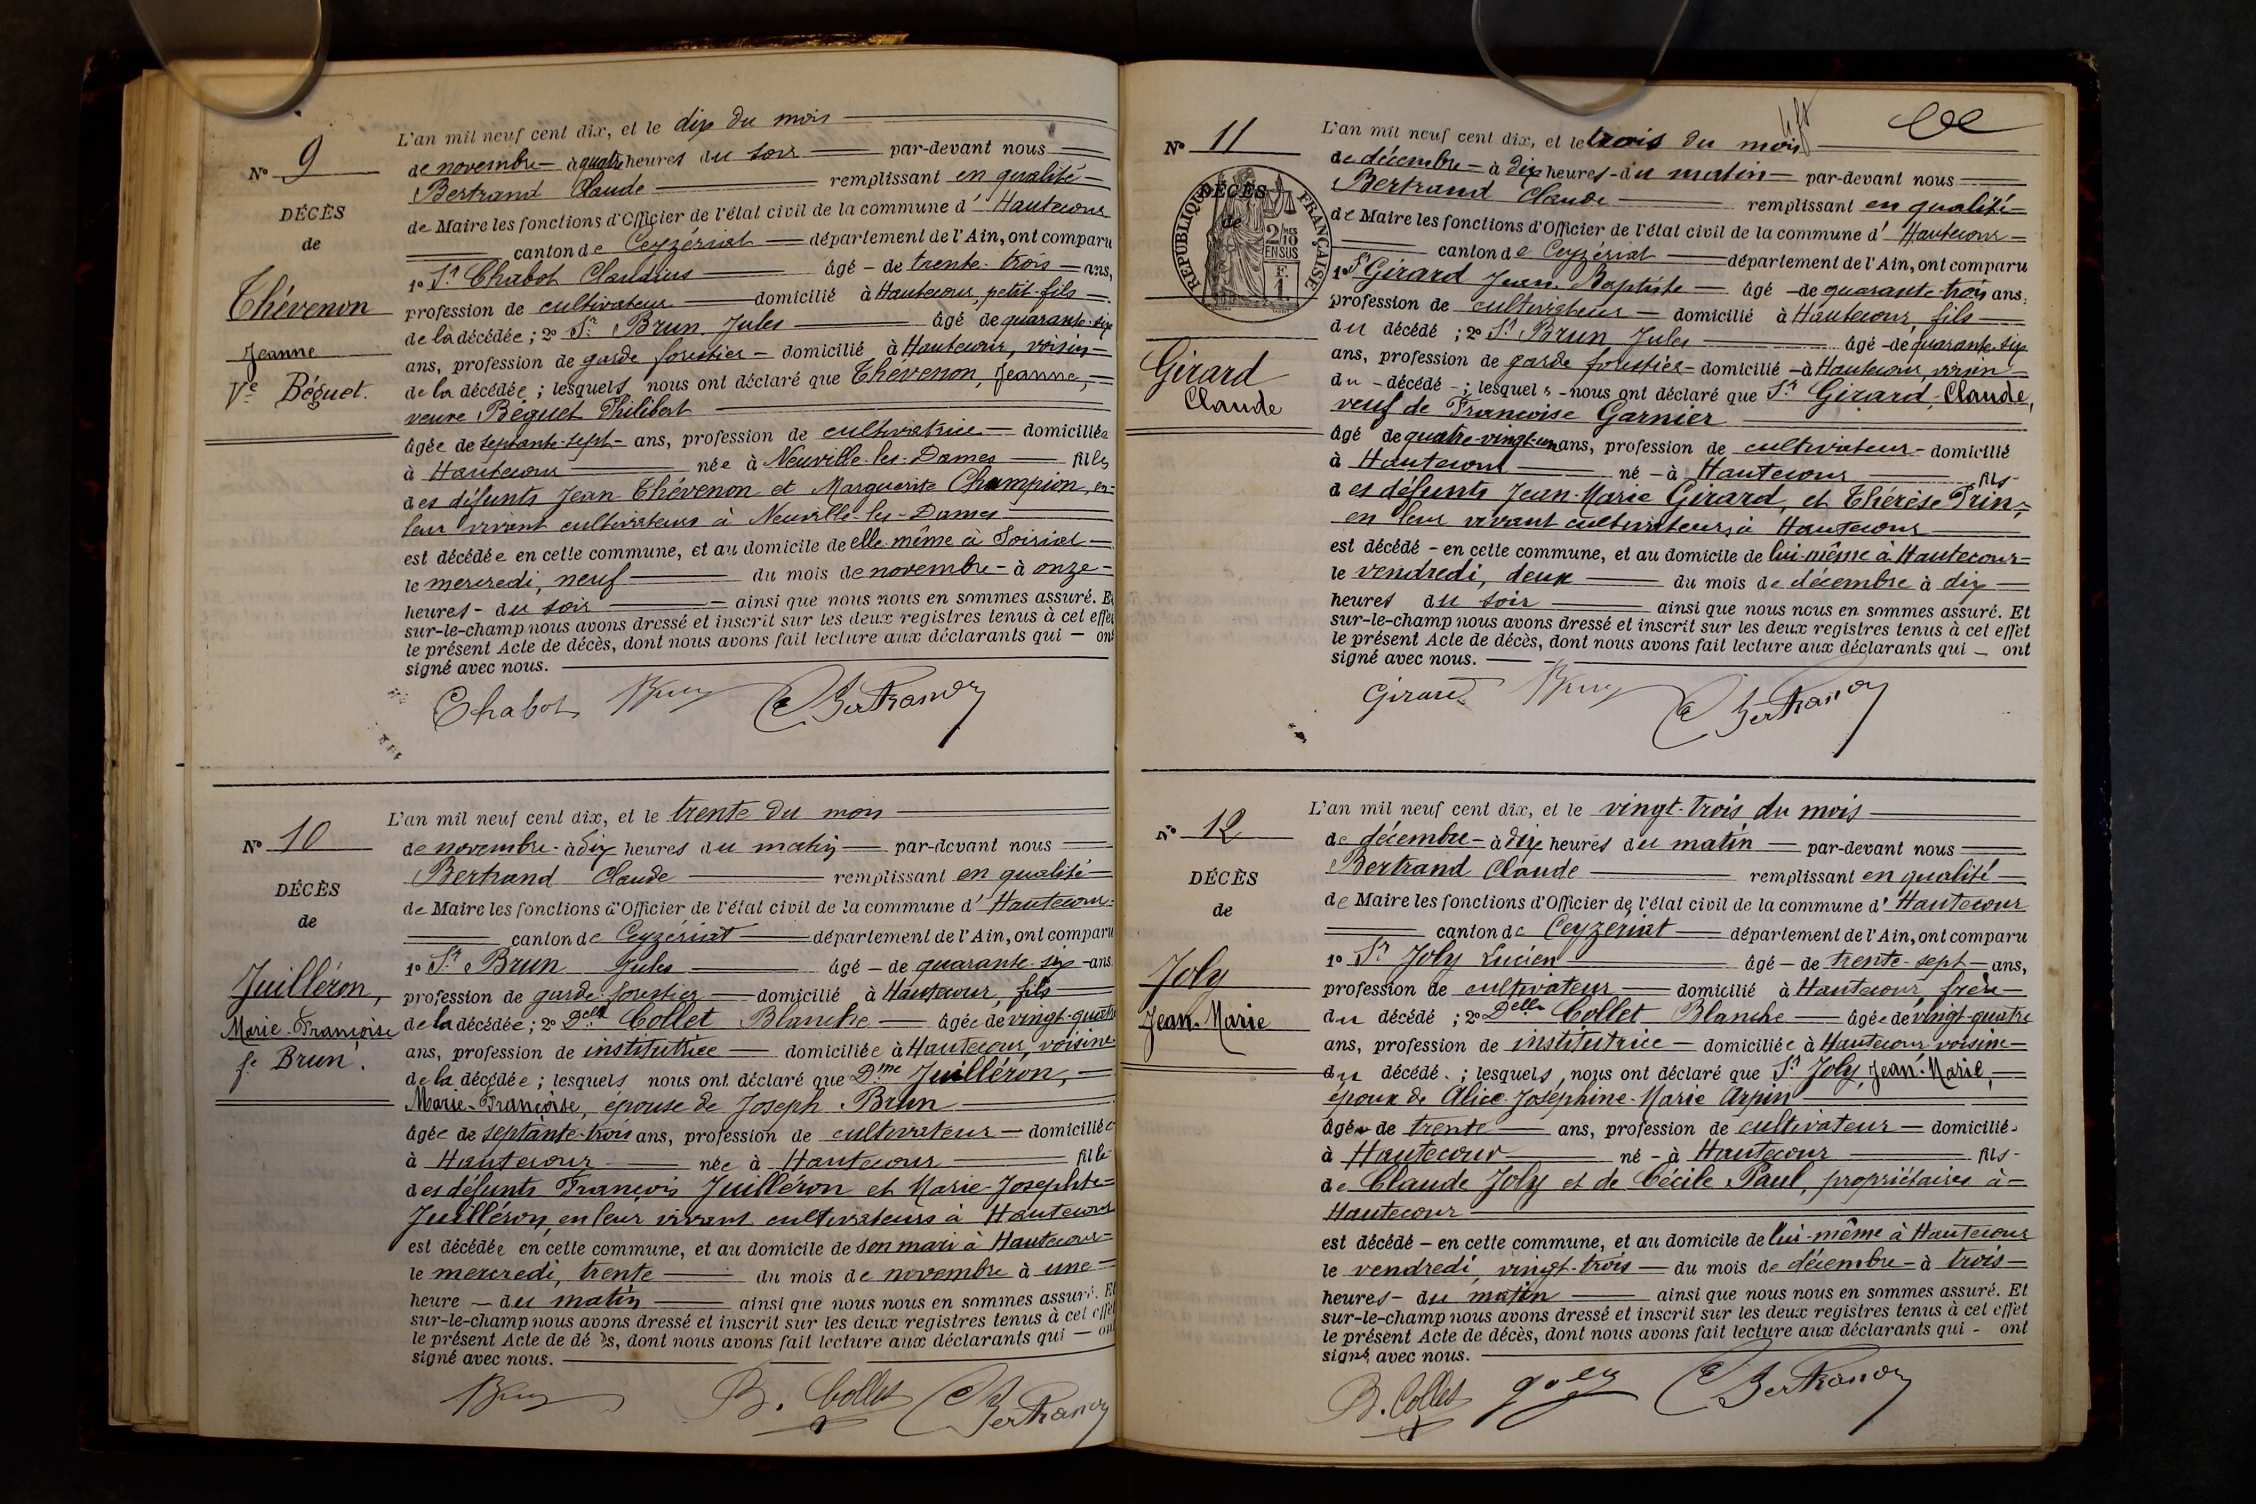 Nº 9
DÉCÈS
de
Thévenon
Jeanne
Vve Béguet.
L'an mil neuf cent dix, et le dix du mois
de novembre à quatre heures du soir par-devant nous
Bertrand Claude remplissant en qualité
de Maire les fonctions d'Officier de l'état civil de la commune d' Hautecour
canton de Ceyzériat département de l'Ain, ont comparu
1º Sr Chabot Claudius âgé - de trente-trois ans,
profession de cultivateur domicilié à Hautecour, petit-fils
de la décédée ; 2º Sr Brun Jules âgé de quarante-six
ans, profession de garde forestier - domicilié à Hautecour, voisin
de la décédée ; lesquels nous ont déclaré que Thévenon, Jeanne,
veuve Béguet Philibert
âgée de septante-sept ans, profession de cultivatrice domiciliée
à Hautecour née à Neuville-les-Dames fille
des défunts Jean Thévenon et Marguerite Champion, en
leur vivant cultivateurs à Neuville-les-Dames
est décédée en cette commune, et au domicile de elle-même à Soiriat
le mercredi, neuf du mois de novembre - à onze
heures - du soir ainsi que nous nous en sommes assuré. Et
sur-le-champ nous avons dressé et inscrit sur les deux registres tenus à cet effet
le présent Acte de décès, dont nous avons fait lecture aux déclarants qui - ont
signé avec nous.
Chabot Brun C Bertrand
Nº 10
DÉCÈS
de
Juilléron,
Marie-Françoise
fe Brun.
L'an mil neuf cent dix, et le trente du mois
de novembre - à dix heures du matin par-devant nous
Bertrand Claude remplissant en qualité
de Maire les fonctions d'Officier de l'état civil de la commune d' Hautecour
canton de Ceyzériat département de l'Ain, ont comparu
1º Sr Brun Jules âgé - de quarante-six - ans
profession de garde-forestier domicilié à Hautecour, fils
de la décédée ; 2º Delle Collet Blanche âgée de vingt-quatre
ans, profession de institutrice domiciliée à Hautecour, voisine
de la décédée ; lesquels nous ont déclaré que Dme Juilléron,
Marie-Françoise, épouse de Joseph Brun
âgée de septante-trois ans, profession de cultivateur - domiciliée
à Hautecour née à Hautecour fille
des défunts François Juilléron et Marie-Josephte
Juilléron, en leur vivant cultivateurs à Hautecour
est décédée en cette commune, et au domicile de son mari à Hautecour
le mercredi, trente du mois de novembre à une
heure - du matin ainsi que nous nous en sommes assuré. Et
sur-le-champ nous avons dressé et inscrit sur les deux registres tenus à cet effet
le présent Acte de décès, dont nous avons fait lecture aux déclarants qui - ont
signé avec nous.
Brun B. Collet C Bertrand
Nº 11
DÉCÈS
de
RÉPUBLIQUE FRANÇAISE
2/10 EN SUS
Girard
Claude
L'an mil neuf cent dix, et le trois du mois
de décembre - à dix heures - du matin - par-devant nous
Bertrand Claude remplissant en qualité
de Maire les fonctions d'Officier de l'état civil de la commune d' Hautecour
canton de Ceyzériat département de l'Ain, ont comparu
1º Sr Girard Jean-Baptiste âgé - de quarante-trois ans,
profession de cultivateur - domicilié à Hautecour, fils
du décédé ; 2º Sr Brun Jules âgé - de quarante-six
ans, profession de garde forestier - domicilié - à Hautecour, voisin
du - décédé - ; lesquels - nous ont déclaré que Sr Girard, Claude,
veuf de Françoise Garnier
âgé de quatre-vingt-un ans, profession de cultivateur - domicilié
à Hautecour né - à Hautecour fils
des défunts Jean-Marie Girard, et Thérèse Prin,
en leur vivant cultivateurs à Hautecour
est décédé - en cette commune, et au domicile de lui-même à Hautecour
le vendredi, deux du mois de décembre à dix
heures du soir ainsi que nous nous en sommes assuré. Et
sur-le-champ nous avons dressé et inscrit sur les deux registres tenus à cet effet
le présent Acte de décès, dont nous avons fait lecture aux déclarants qui - ont
signé avec nous.
Girard Brun C Bertrand
Nº 12
DÉCÈS
de
Joly
Jean-Marie
L'an mil neuf cent dix, et le vingt-trois du mois
de décembre - à dix heures du matin par-devant nous
Bertrand Claude remplissant en qualité
de Maire les fonctions d'Officier de l'état civil de la commune d' Hautecour
canton de Ceyzériat département de l'Ain, ont comparu
1º Sr Joly Lucien âgé - de trente-sept - ans,
profession de cultivateur domicilié à Hautecour, frère
du décédé ; 2º Delle Collet Blanche âgée de vingt-quatre
ans, profession de institutrice - domiciliée à Hautecour voisine
du décédé. ; lesquels nous ont déclaré que Sr Joly, Jean-Marie,
époux de Alice-Joséphine-Marie Arpin
âgé de trente ans, profession de cultivateur - domicilié
à Hautecour né - à Hautecour fils
de Claude Joly et de Cécile Paul, propriétaires à
Hautecour
est décédé - en cette commune, et au domicile de lui-même à Hautecour
le vendredi, vingt-trois du mois de décembre - à trois
heures - du matin ainsi que nous nous en sommes assuré. Et
sur-le-champ nous avons dressé et inscrit sur les deux registres tenus à cet effet
le présent Acte de décès, dont nous avons fait lecture aux déclarants qui - ont
signé avec nous.
B. Collet Joly C Bertrand